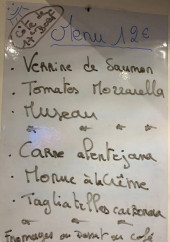 Menu 12€
. Verrine de Saumon
. Tomates Mozzarella
. Museau
. Carne alentejana
. Morue à la Crème
. Tagliatelles carbonara
Fromages ou Dessert ou café